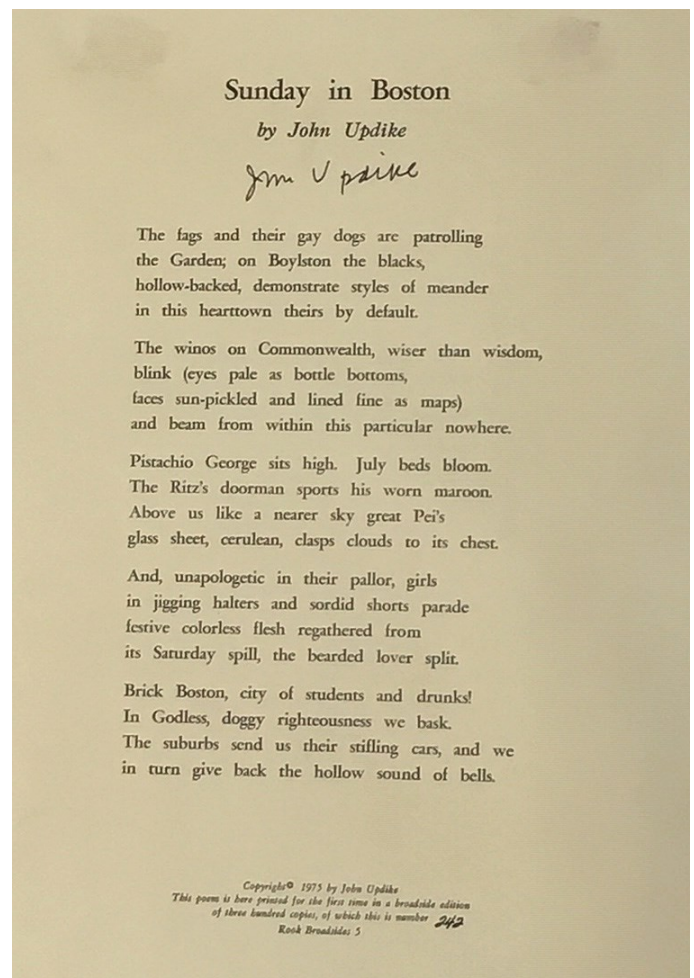 Sunday in Boston
by John Updike
John Updike
The fags and their gay dogs are patrolling
the Garden; on Boylston the blacks,
hollow-backed, demonstrate styles of meander
in this hearttown theirs by default.
The winos on Commonwealth, wiser than wisdom,
blink (eyes pale as bottle bottoms,
faces sun-pickled and lined fine as maps)
and beam from within this particular nowhere.
Pistachio George sits high. July beds bloom.
The Ritz's doorman sports his worn maroon.
Above us like a nearer sky great Pei's
glass sheet, cerulean, clasps clouds to its chest.
And, unapologetic in their pallor, girls
in jigging halters and sordid shorts parade
festive colorless flesh regathered from
its Saturday spill, the bearded lover split.
Brick Boston, city of students and drunks!
In Godless, doggy righteousness we bask.
The suburbs send us their stifling cars, and we
in turn give back the hollow sound of bells.
Copyright© 1975 by John Updike
This poem is here printed for the first time in a broadside edition
of three hundred copies, of which this is number 242
Rook Broadsides 5